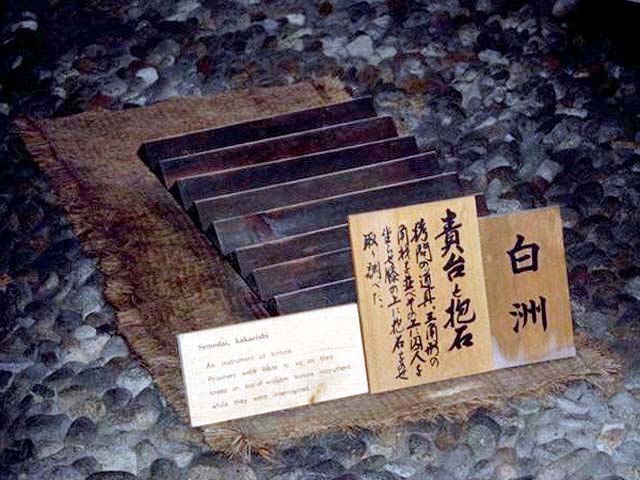 Semedai, kakaeishi
An instrument of torture
Prisoners were made to sit on their
knees on top of wooden torture instrument
while they were interrogated.
責台と抱石
拷問の道具、三角形の
角材を並べその上に囚人を
坐らせ膝の上に抱石をのせ
取り調べた
白洲